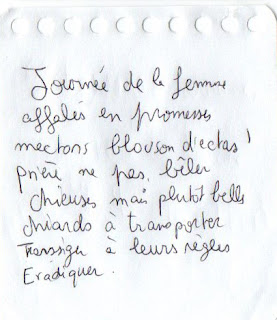 Journée de la femme
affalés en promesses
mectons blouson d'ectas!
prière ne pas bêler
chieuses mais plutôt belles
chiards à transporter
Transiger à leurs règles
Eradiquer.